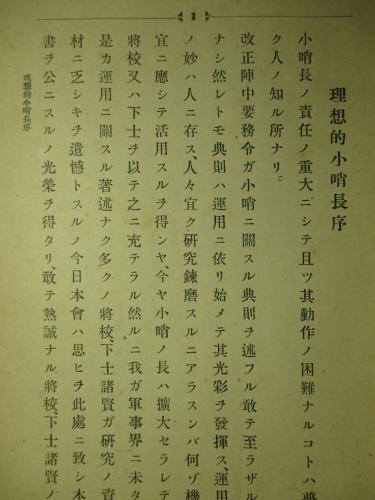 1
理想的小哨長序
小哨長ノ責任ノ重大ニシテ且ツ其動作ノ困難ナルコトハ
ク人ノ知ル所ナリ。
改正陣中要務令ガ小哨ニ關スル典則ヲ述フル敢テ至ラザル
ナシ然レトモ典則ハ運用ニ依リ始メテ其光彩ヲ發揮ス、運用
ノ妙ハ人ニ存ス、人々宜ク研究鍊磨スルニアラスンバ何ゾ機
宜ニ應シテ活用スルヲ得ンヤ、今ヤ小哨ノ長ハ擴大セラレテ
將校又ハ下士ヲ以テ之ニ充テラル然ルニ我ガ軍事界ニ未タ
是カ運用ニ關スル著述ナク多クノ將校、下士諸賢ガ研究ノ資
材ニ乏シキヲ遺憾トスルノ今日本會ハ思ヒヲ此處ニ致シ本
書ヲ公ニスルノ光榮ヲ得タリ、敢テ熱誠ナル將校、下士諸賢ノ
理想的小哨長序